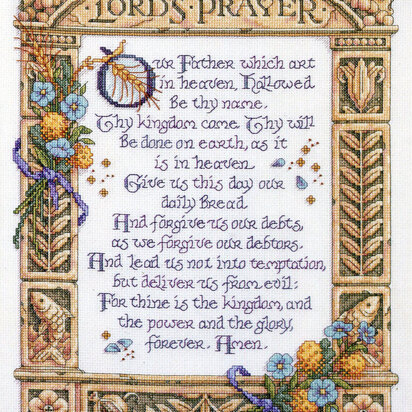 LORD'S · PRAYER ·
Our Father which art
in heaven, Hallowed
be thy name.
Thy kingdom come. Thy will
be done on earth, as it
is in heaven.
Give us this day our
daily bread.
And forgive us our debts,
as we forgive our debtors.
And lead us not into temptation,
but deliver us from evil:
For thine is the kingdom, and
the power and the glory,
forever. Amen.